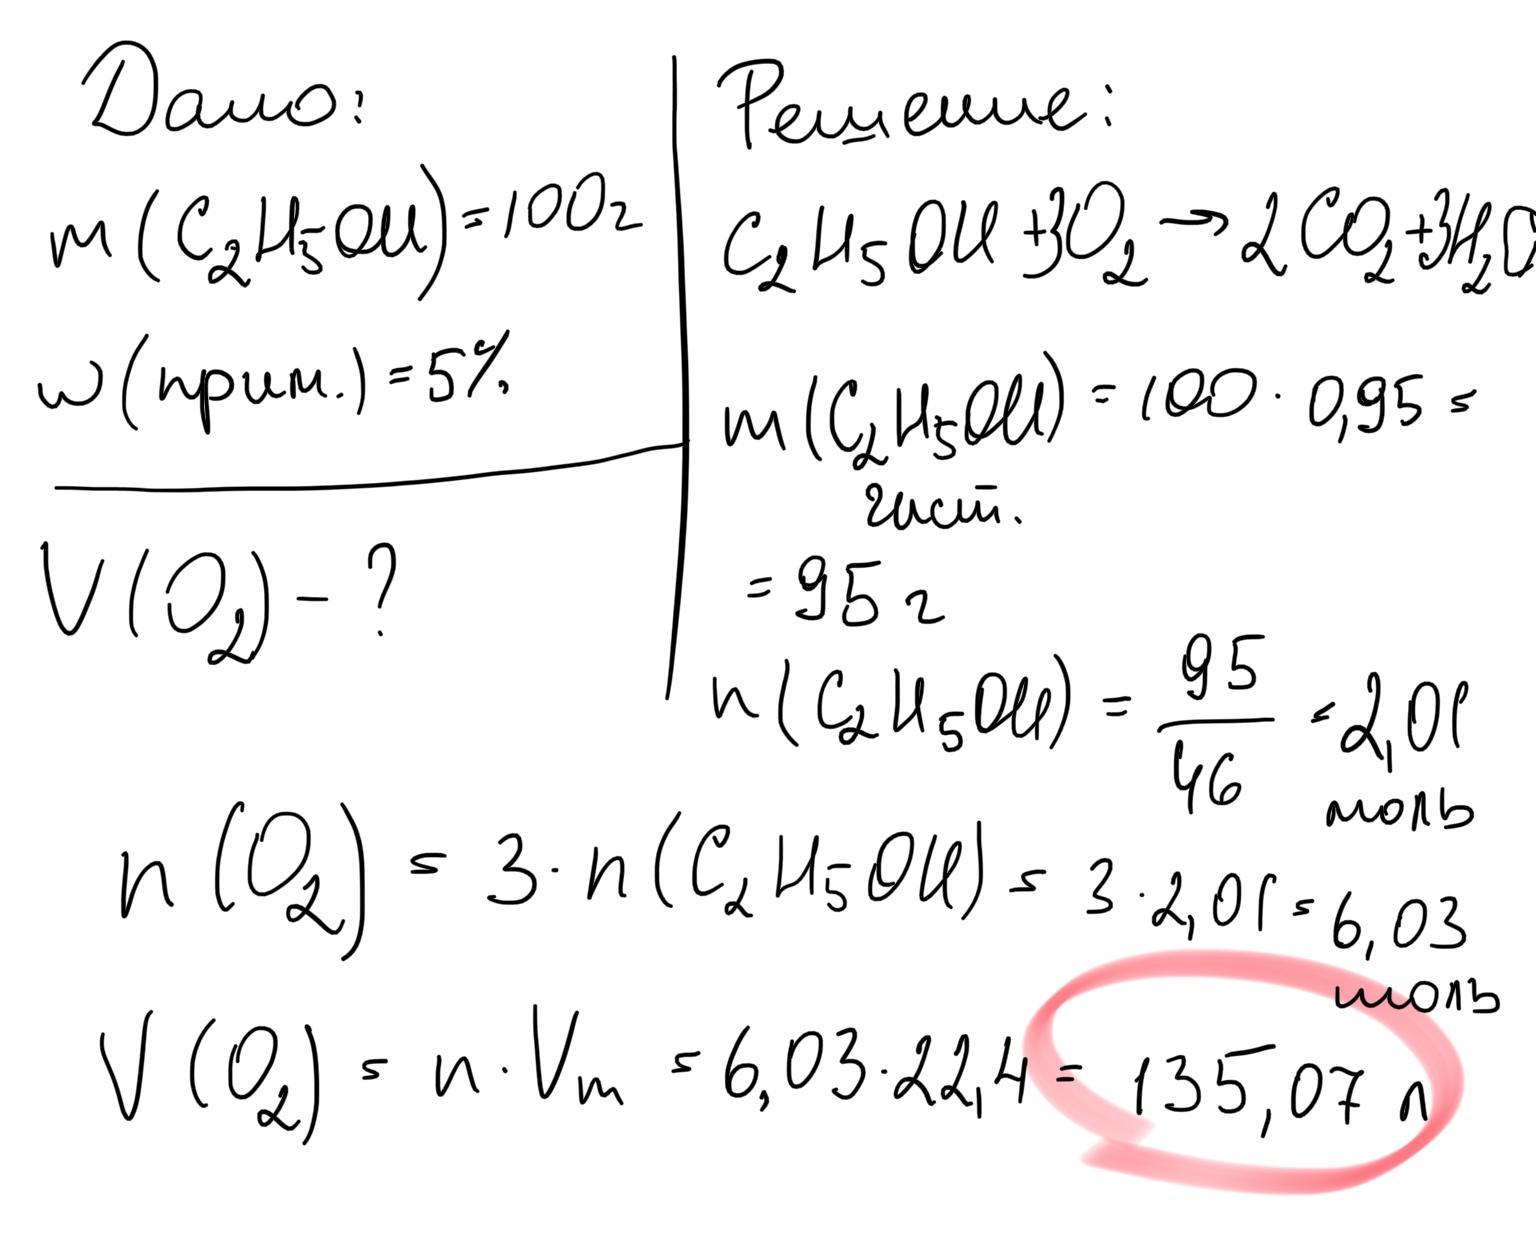 Дано:
m(C₂H₅OH)=100г
w(прим.)=5%
V(O₂)-?
Решение:
C₂H₅OH+3O₂→2CO₂+3H₂O
m(C₂H₅OH)=100·0,95=
чист.
=95г
n(C₂H₅OH)=95/46=2,01
моль
n(O₂)=3·n(C₂H₅OH)=3·2,01=6,03
моль
V(O₂)=n·Vm=6,03·22,4=135,07 л